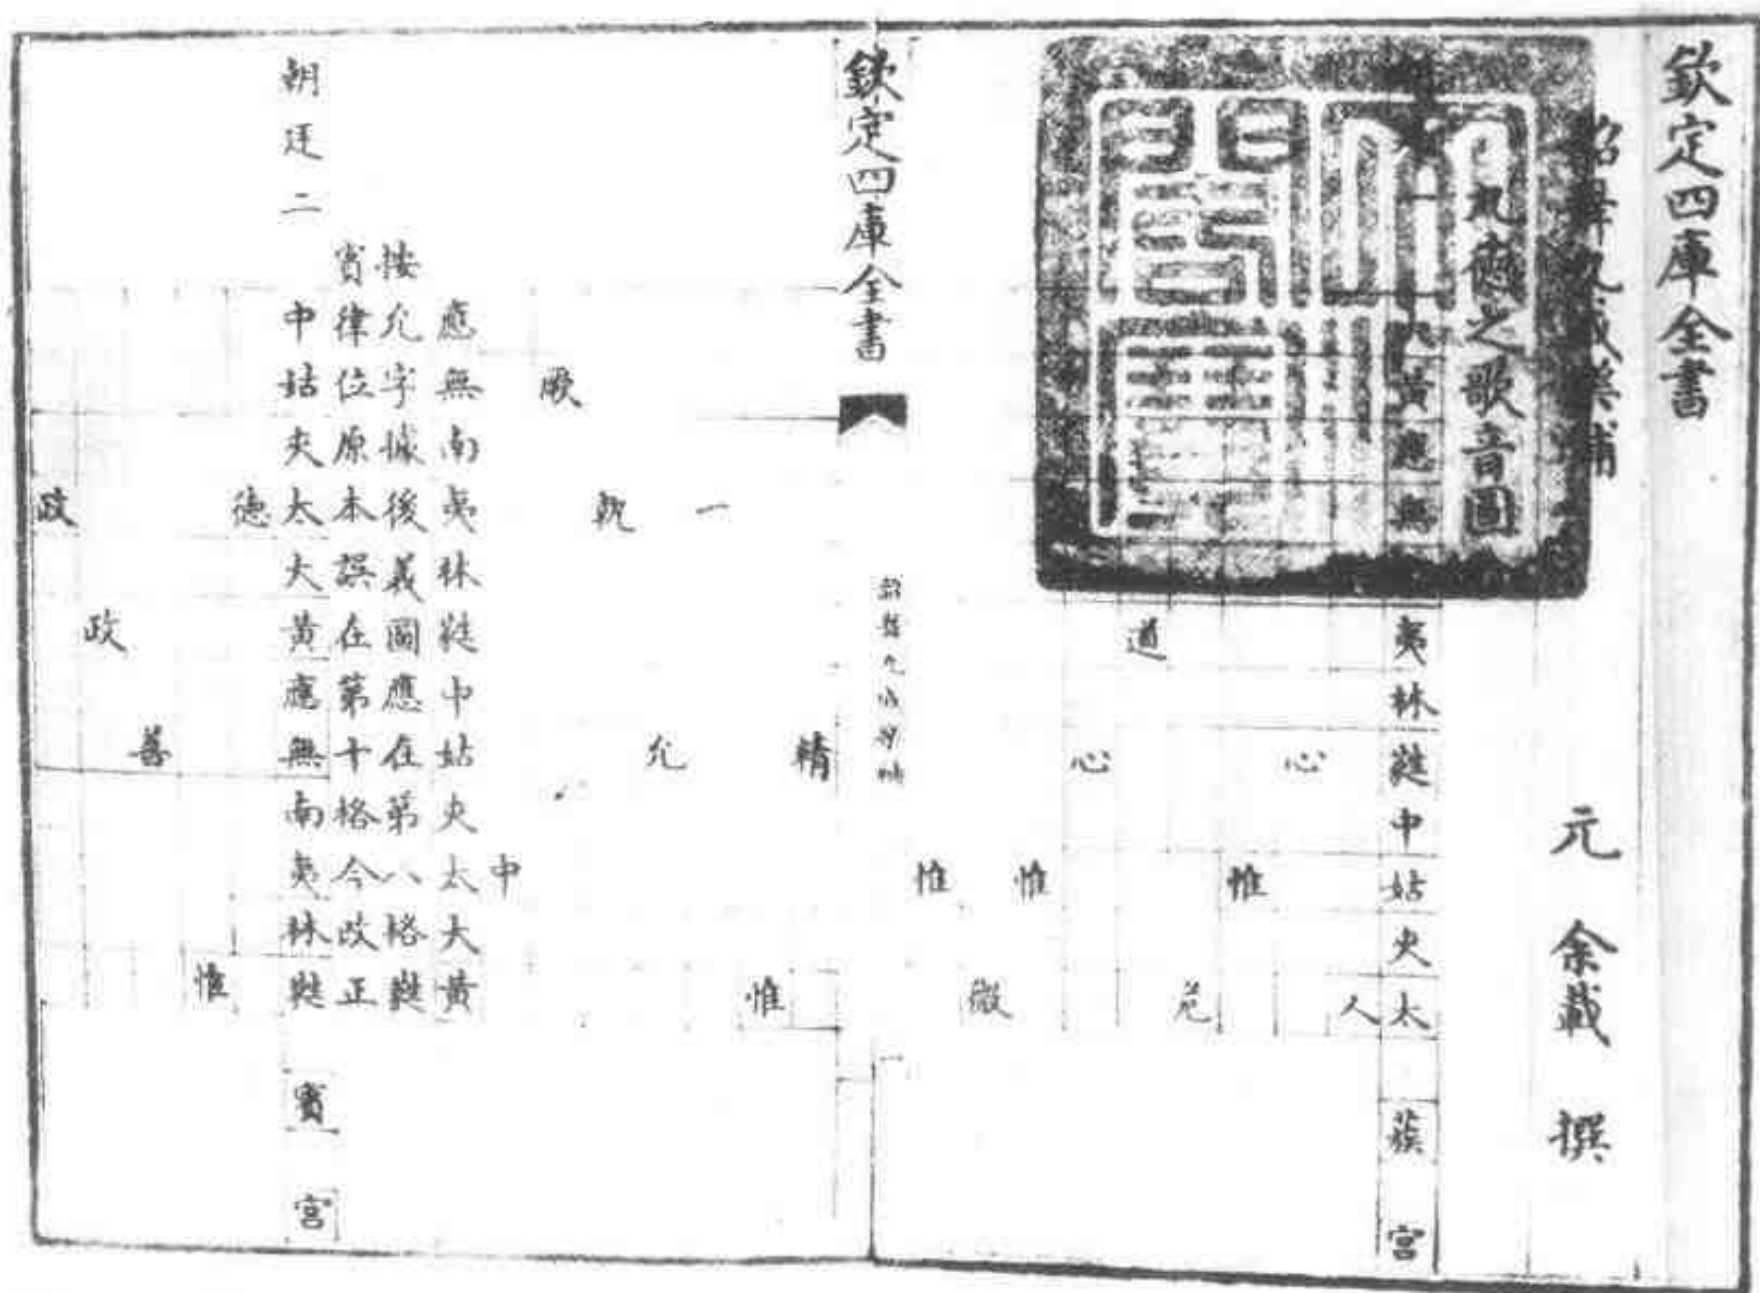 欽定四庫全書
韶舞九成樂補
元 余載 撰
九德之歌音圖
一 大黃應無 夷林蕤中姑夾太 蔟 宮
人
心
惟
危
道
心
惟
微
惟
欽定四庫全書
韶舞九成樂補
精
惟
一
允
執
厥
中
應無南夷林蕤中姑夾太大黃
按允字據後義圖應在第八格蕤
賓律位原本誤在第十格今改正
朝廷二 中姑夾太大黃應無南夷林蕤 賓 宮
德
惟
善
政
政